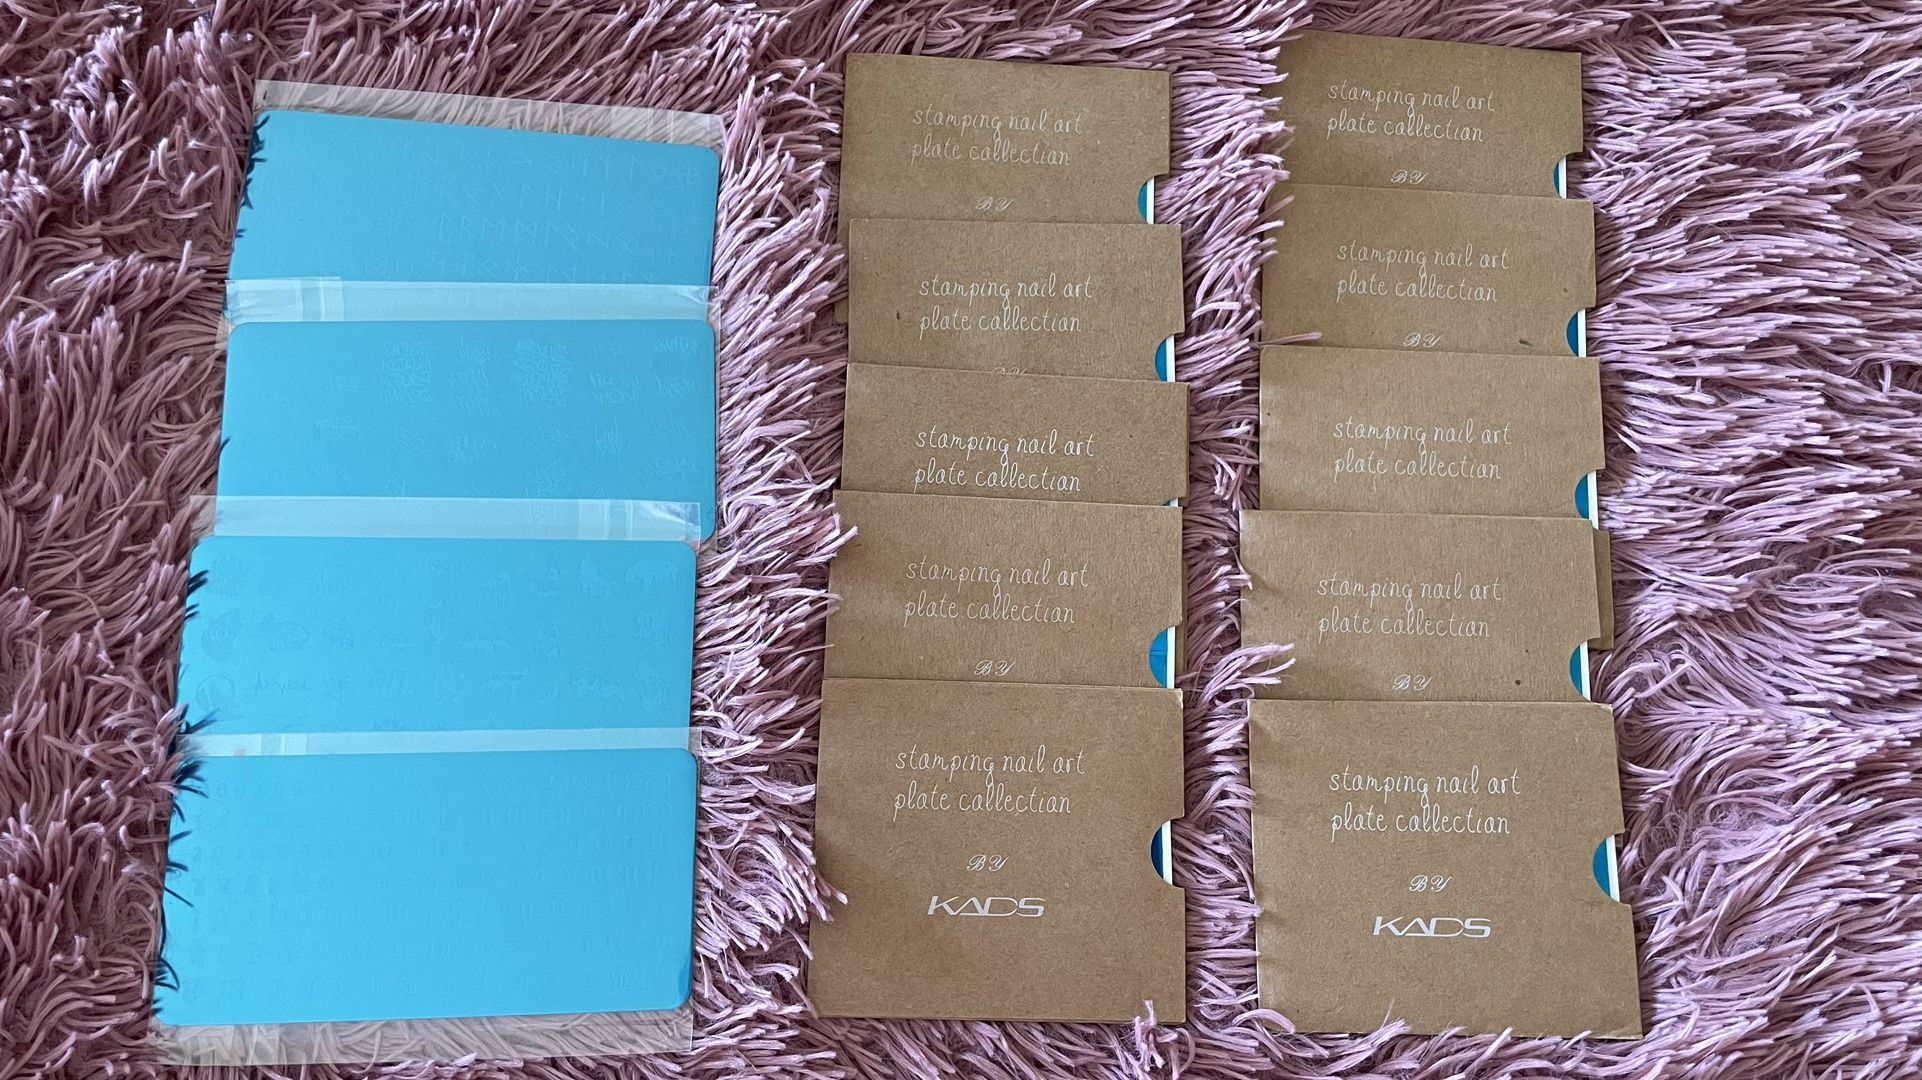 stamping nail art
plate collection
BY
stamping nail art
plate collection
BY
stamping nail art
plate collection
stamping nail art
plate collection
BY
stamping nail art
plate collection
BY
KADS
stamping nail art
plate collection
BY
stamping nail art
plate collection
BY
stamping nail art
plate collection
stamping nail art
plate collection
BY
stamping nail art
plate collection
BY
KADS